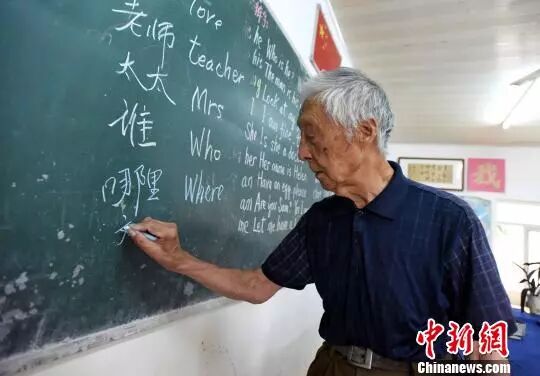 love
老师 teacher
太太 Mrs
谁 Who
哪里 Where
he Who is he
his The man is
Look at
I I am fine
She Is she a
her Her name is Helen
an Have an egg please
am Are you Sam?
me Let me have a
中新网
Chinanews.com